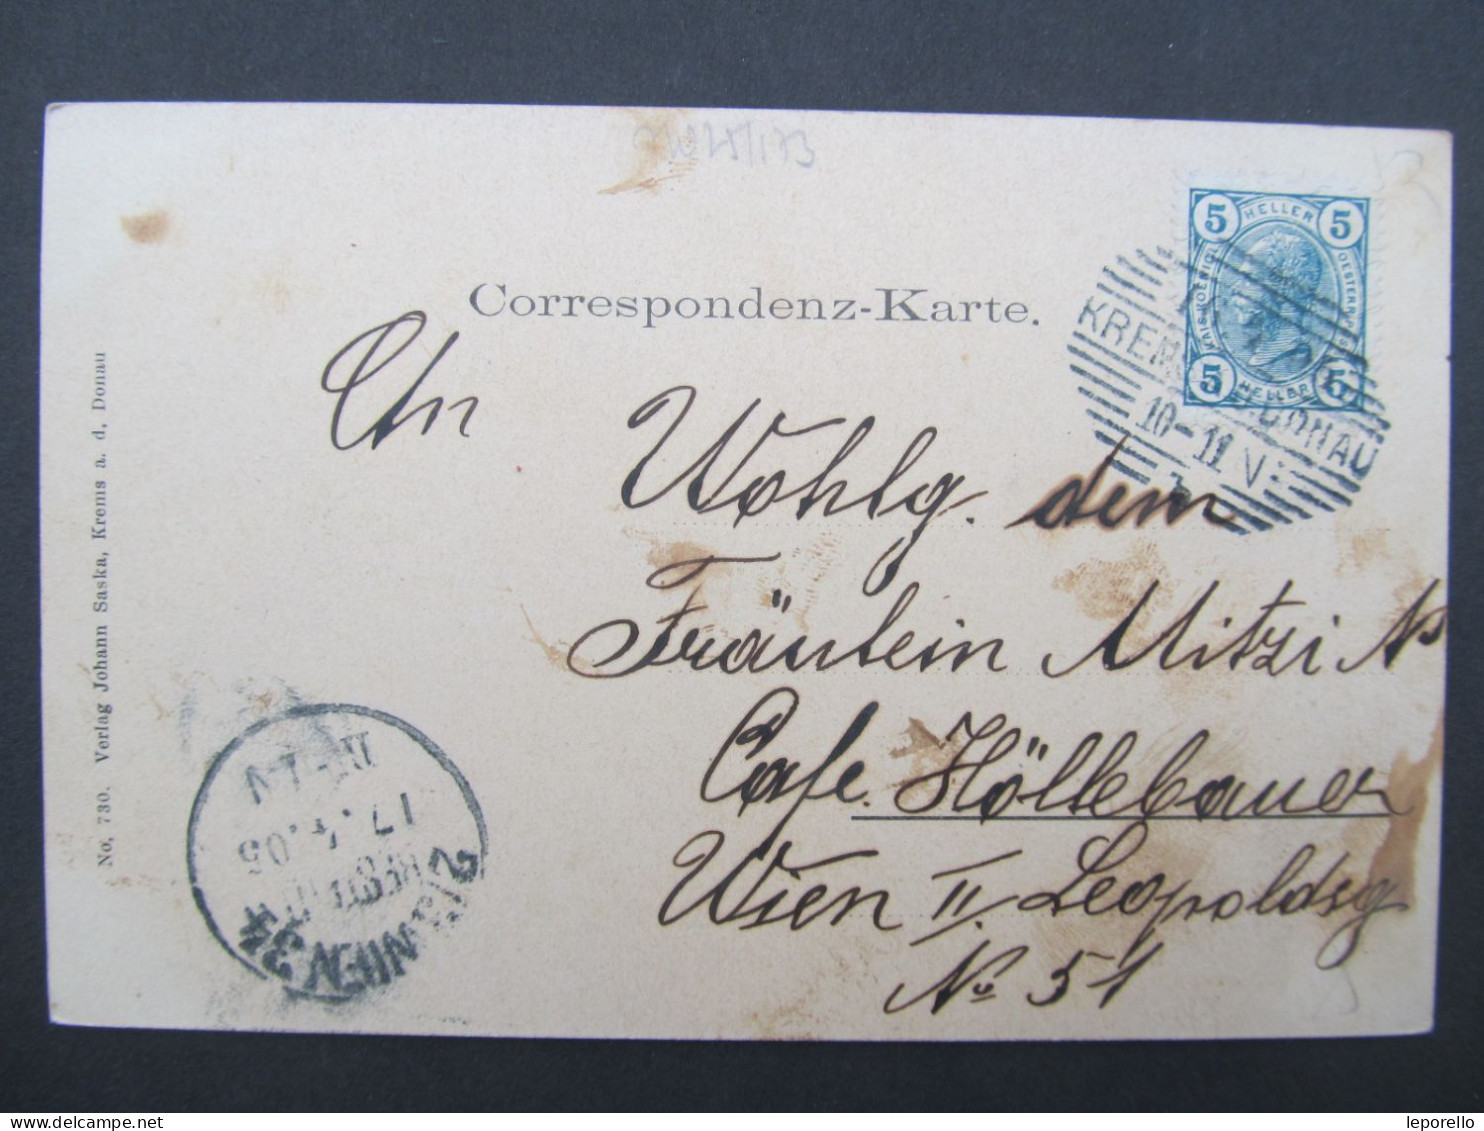 Correspondenz-Karte.
5 HELLER 5
KAIS. KOENIGL.
5 HELLER 5
KREMS DONAU
10-11 V.
An
Wohlg. dem
Fräulein Mitzi N
Cafe Höllebauer
Wien II. Leopoldsg
No 51
17.4.05
BESTELLT
WIEN
No. 730. Verlag Johann Saska, Krems a. d. Donau
leporello